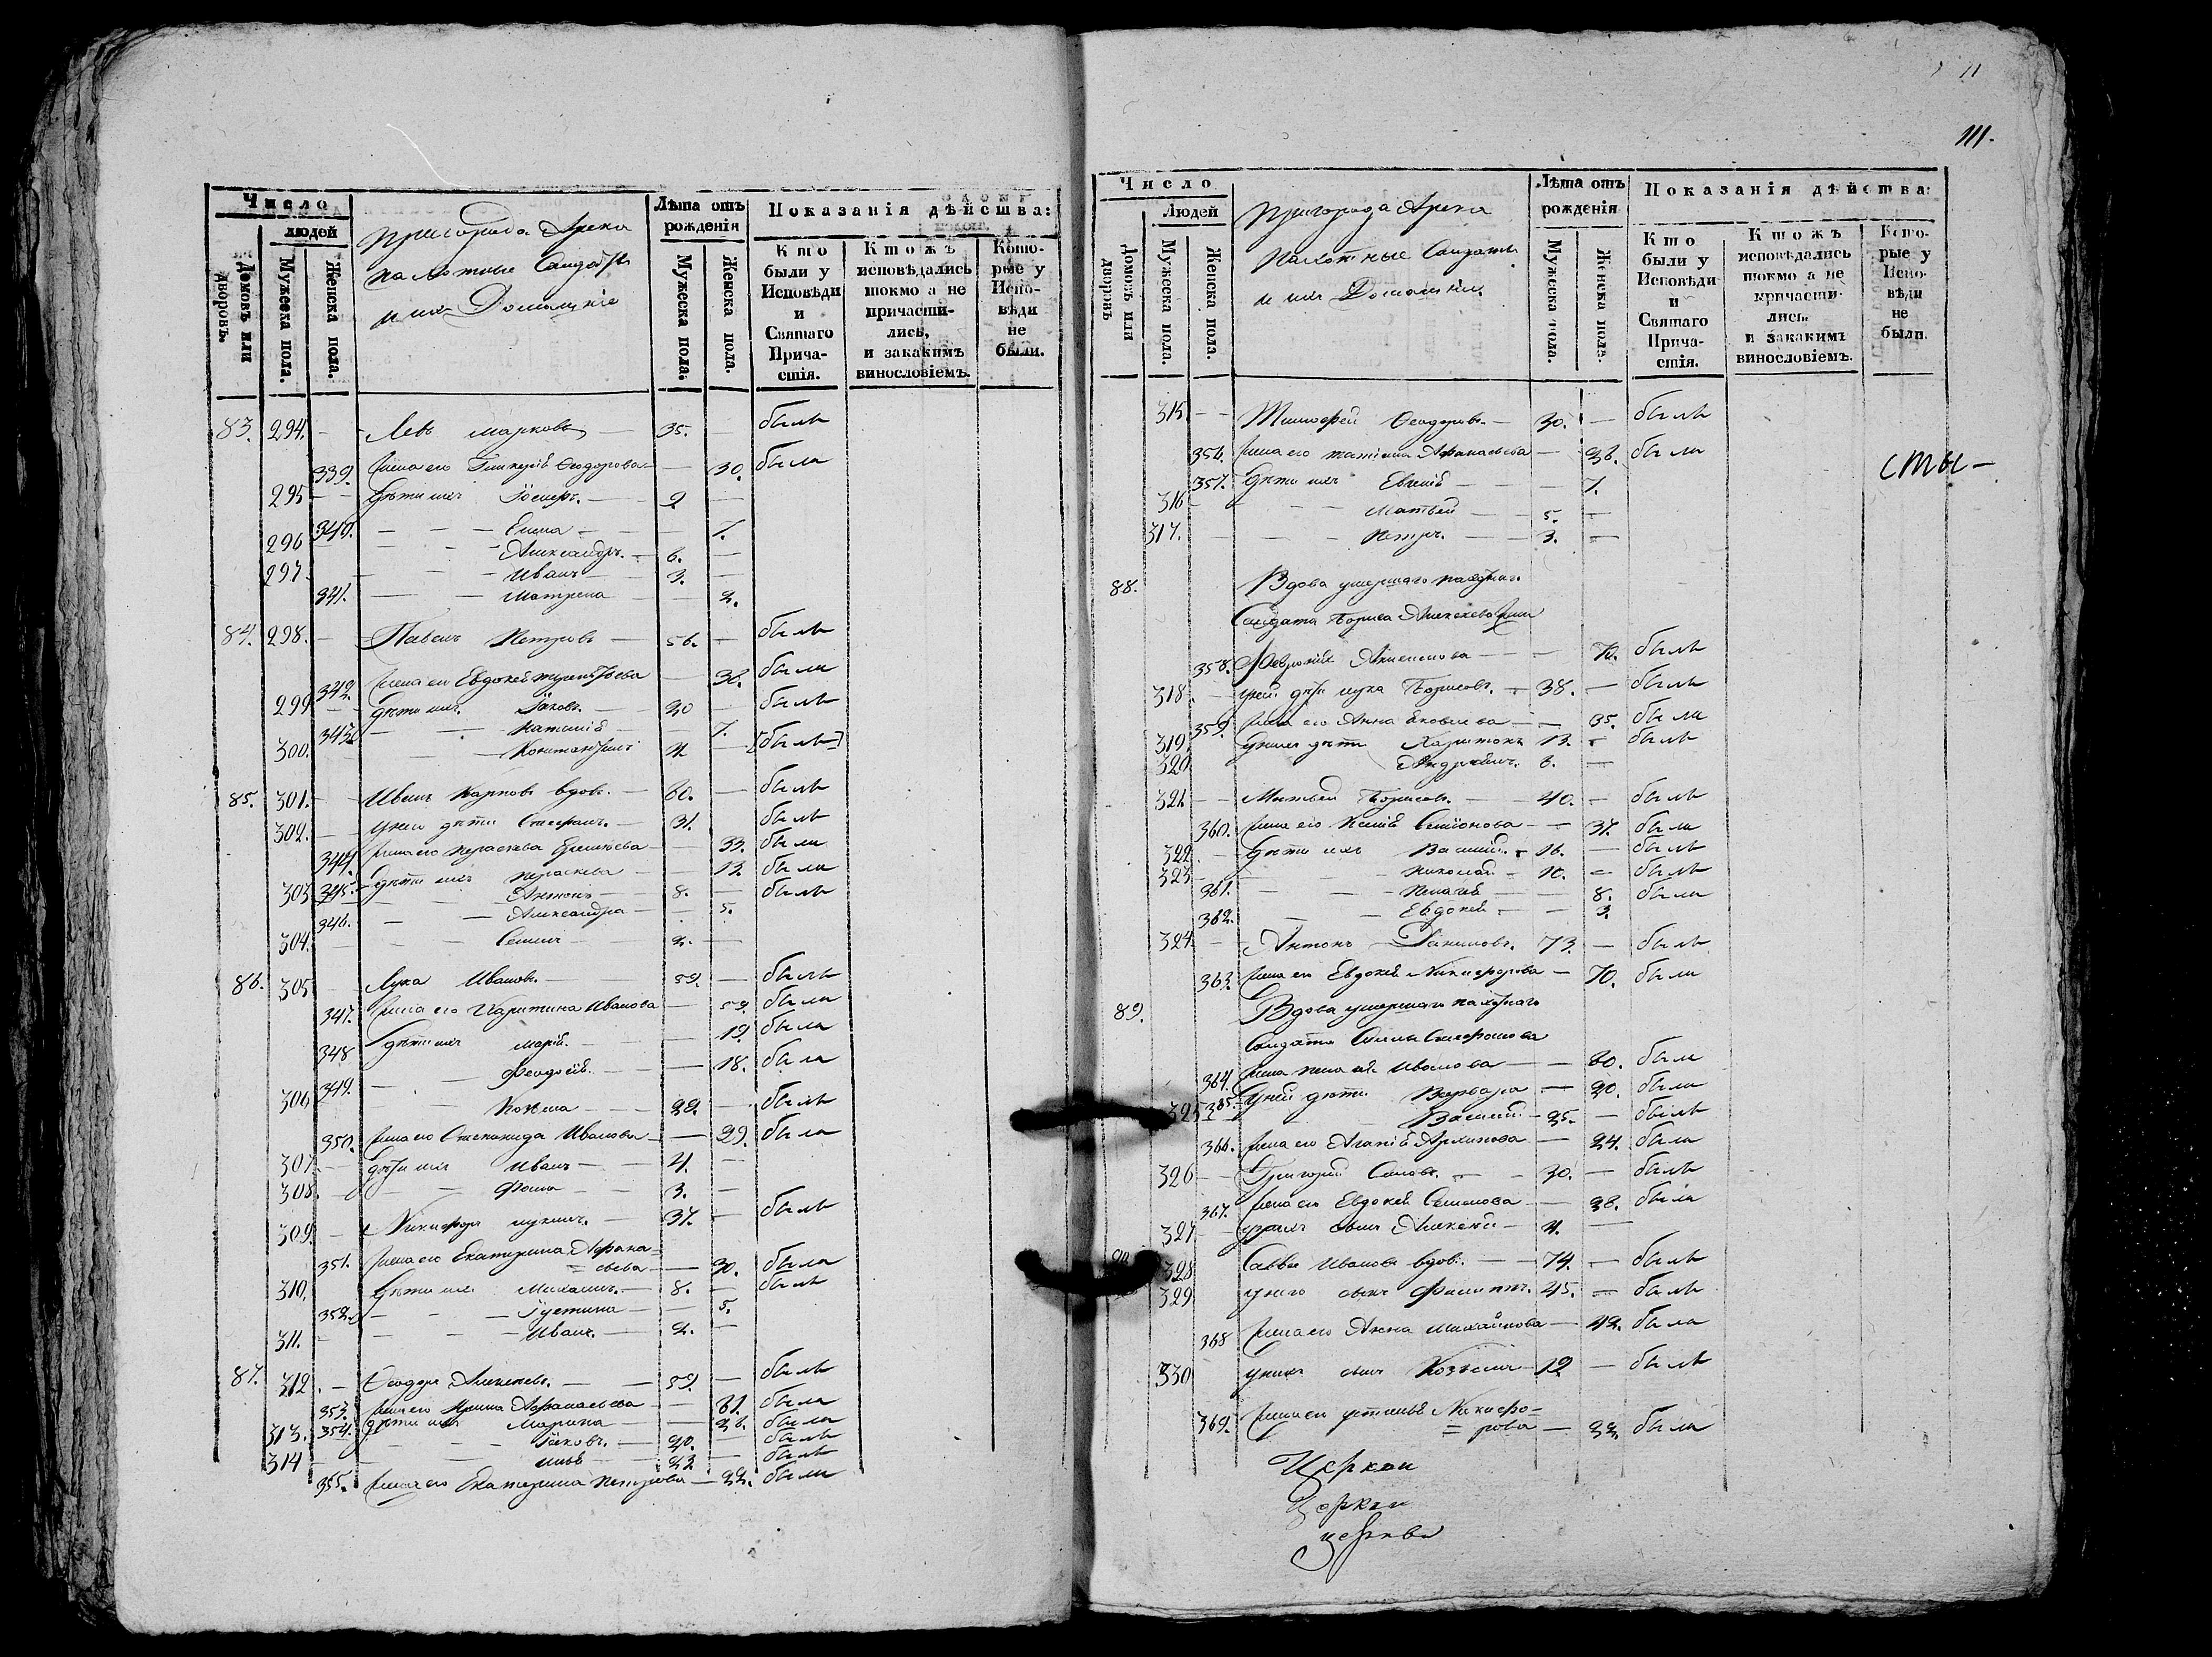 Число
людей
Домовъ или дворовъ.
Мужеска пола.
Женска пола.
пригорода Арска
пахотные Солдаты
и ихъ Домашніе
Лѣта отъ рожденія
Мужеска пола.
Женска пола.
Показанія дѣйства:
Кто были у Исповѣди и Святаго Причастія.
Ктожъ исповѣдались токмо а не причастились, и закакимъ винословіемъ.
Которые у Исповѣди не были.
83. 294. — Левъ Марковъ — 35. — былъ
339. жена его Гликерія Ѳеодорова — 30. была
295 — дѣти ихъ — 2 —
340. — Елена — 7.
296 — Александръ. — 6. —
297. — Иванъ — 3. —
341. — Матрена — 2.
84. 298. — Павелъ Петровъ — 56. — былъ
342. жена его Евдокея — 38. была
299 — дѣти ихъ Іаковъ. — 20 — былъ
343. — Наталія — 7.
300. — Константинъ 4 — [былъ]
85. 301. — Иванъ Карповъ вдовъ. — 60. — былъ
302. — у него дѣти Стефанъ. — 31. былъ
344. жена его Параскева — 33. была
345. дѣти ихъ Параскева — 13. была
303 — Антонъ — 8. — былъ
346. — Александра — 5.
304. — Семенъ — 2. —
86. 305 — Лука Ивановъ. — 59. — былъ
347. жена его Харитина Иванова — 59. была
348 дѣти ихъ Марія. — 19. была
349. — Феодосія. — 18. была
306 — Козьма — 22. — былъ
350. жена его Степанида Иванова — 29. была
307. — дѣти ихъ Иванъ — 4. —
308. — Фома — 3. —
309. — Никифоръ Лукинъ. — 37. — былъ
351. жена его Екатерина Афана=
=сьева — 30. была
310. дѣти ихъ Михаилъ. — 8. — былъ
352. — Іустина — 5.
311. — Иванъ. — 2. —
87. 312. — Ѳеодоръ Алексѣевъ. — 59. — былъ
353. жена его Ирина Афанасьева — 61. была
354. дѣти ихъ Марина — 26. была
313. — Іаковъ. — 20. — былъ
314 — Илья — 23. — былъ
355. жена его Екатерина Петрова — 22. была
111.
Число
Людей
Домовъ или дворовъ
Мужеска пола.
Женска пола.
пригорода Арска
пахотные Солдаты
и ихъ Домашніе.
Лѣта отъ рожденія
Мужеска пола.
Женска пола.
Показанія дѣйства:
Кто были у Исповѣди и Святаго Причастія.
Ктожъ исповѣдались токмо а не причастились и закакимъ винословіемъ.
Которые у Исповѣди не были.
315 — Тимофей Ѳеодоровъ — 30. — былъ
356. жена его Татіана Афанасьева — 36. была
сты —
357. дѣти ихъ Евгенія — 7.
316 — Матвей — 5. —
317. — Петръ. — 3. —
88. Вдова умершаго пахотнаго
Солдата Бориса Алексеева жена
358. Февронія — 70. была
318. — у ней дѣти Лука Борисовъ. — 38. — былъ
359. жена его Анна — 35. была
319. у нихъ дѣти Харитонъ 13. — былъ
320 Андреянъ. 6. —
321. — Матвей Борисовъ. — 40. — былъ
360. жена его Ксенія Семіонова — 37. была
322. — дѣти ихъ Василій. — 16. — былъ
323 — Николай — 10. — былъ
361. — Пелагея — 8. была
362. — Евдокея — 3.
324 — Антонъ Даниловъ. 73. — былъ
363. жена его Евдокея Никифорова — 70. была
89. Вдова умершаго пахотнаго
Солдата Силы Стефанова
364. жена Пелагея Иванова — 60. была
365. у ней дѣти Варвара — 20. была
325 Василій — 25. — былъ
366. жена его Агапія Архипова — 24. была
326 — Григорій Силовъ. — 30. — былъ
367. жена его Евдокея Семенова — 28. была
327 — у нихъ сынъ Алексѣй — 4. —
90. 328 Савва Ивановъ вдовъ. — 74. — былъ
329 у него сынъ Филиппъ. 45. — былъ
368 жена его Анна Михайлова — 42. была
330 у нихъ сынъ Козьма 19 — былъ
369. жена его Устинья Никифо=
=рова — 22. была
Церкви
Церкви
церкви